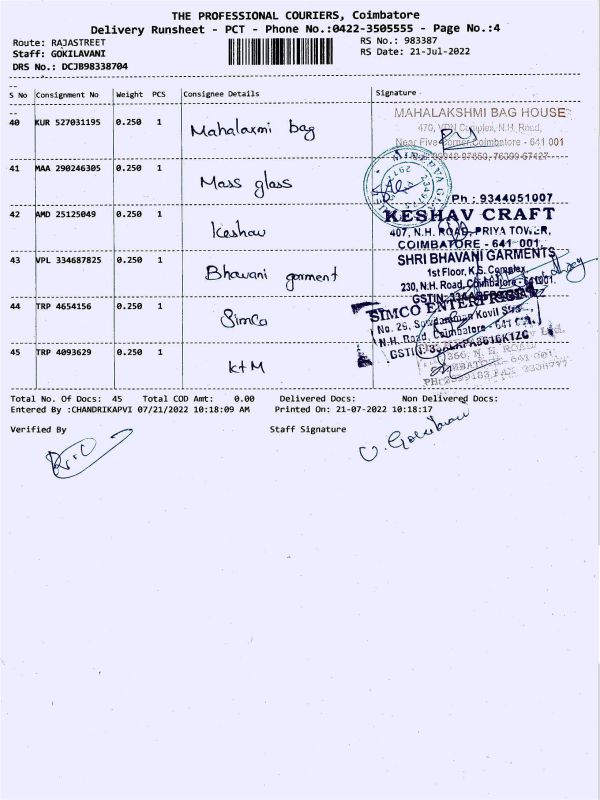 THE PROFESSIONAL COURIERS, Coimbatore
Delivery Runsheet - PCT - Phone No.:0422-3505555 - Page No.:4
Route: RAJASTREET RS No.: 983387
Staff: GOKILAVANI RS Date: 21-Jul-2022
DRS No.: DCJB98338704
S No Consignment No Weight PCS Consignee Details Signature
40 KUR 527031195 0.250 1 Mahalaxmi bag
MAHALAKSHMI BAG HOUSE
470, VPN Complex, N.H. Road,
Near Five Corner, Coimbatore - 641 001
41 MAA 290246305 0.250 1 Mass glass
Ph : 9344051007
42 AMD 25125049 0.250 1 Keshav
KESHAV CRAFT
407, N.H. ROAD, PRIYA TOWER,
COIMBATORE - 641 001.
43 VPL 334687825 0.250 1 Bhavani garment
SHRI BHAVANI GARMENTS
1st Floor, K.S. Complex,
230, N.H. Road, Coimbatore - 641001.
GSTIN:
44 TRP 4654156 0.250 1 Simco
SIMCO ENTERPRISES
No. 26, Kovil Street
N.H. Road, Coimbatore - 641 001.
GSTIN:
45 TRP 4093629 0.250 1 KTM
366, N. H. ROAD
COIMBATORE - 641 001.
Total No. Of Docs: 45 Total COD Amt: 0.00 Delivered Docs: Non Delivered Docs:
Entered By :CHANDRIKAPVI 07/21/2022 10:18:09 AM Printed On: 21-07-2022 10:18:17
Verified By Staff Signature